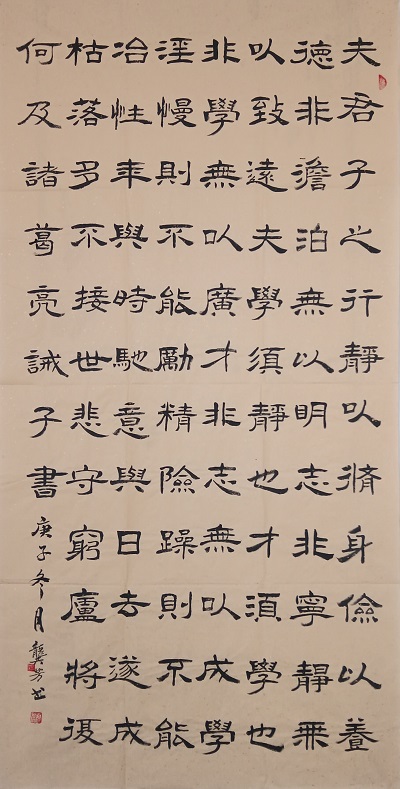 夫君子之行靜以脩身儉以養
德非澹泊無以明志非寧靜無
以致遠夫學須靜也才須學也
非學無以廣才非志無以成學
淫慢則不能勵精險躁則不能
冶性年與時馳意與日去遂成
枯落多不接世悲守窮廬將復
何及諸葛亮誡子書
庚子冬月龔芳书